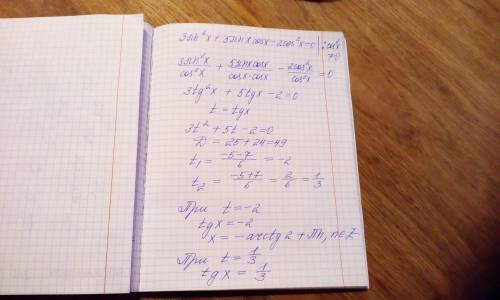 3sin²x + 5sinx cosx - 2cos²x = 0 | : cos²x ≠ 0
3sin²x/cos²x + 5sinxcosx/cosx·cosx - 2cos²x/cos²x = 0
3tg²x + 5tgx - 2 = 0
t = tgx
3t² + 5t - 2 = 0
D = 25 + 24 = 49
t₁ = -5-7/6 = -2
t₂ = -5+7/6 = 2/6 = 1/3
При t = -2
tgx = -2
x = -arctg2 + Πn, n∈Z
При t = 1/3
tgx = 1/3